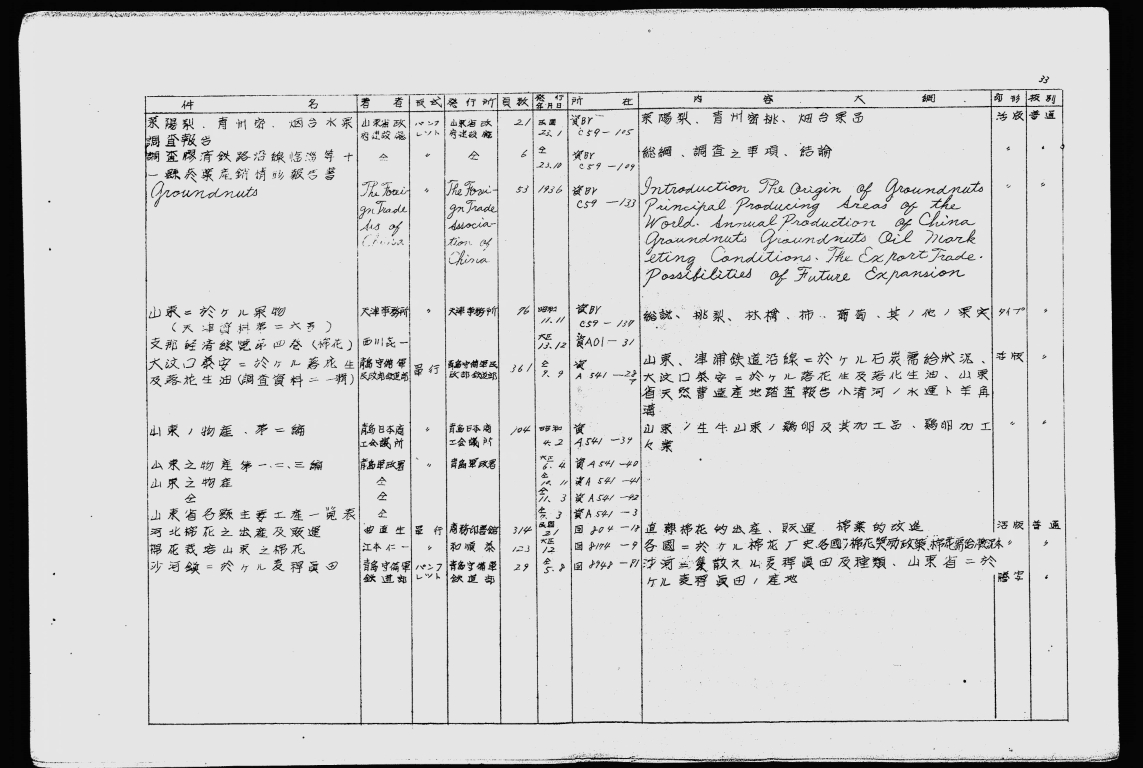 33
件 名 著者 版式 発行所 頁数 発行年月日 所在 内容大綱 印形 秘別
莱陽梨、青州密、烟台水果 山東省政 パンフ 山東省政 21 民国 資BY 莱陽梨、青州密桃、烟台果品 活版 普通
調査報告 府建設庁 レット 府建設庁 23.1 C59-105
調査膠済鉄路沿線臨淄等十 仝 〃 仝 6 仝 資BY 総綱、調査之事項、結論 〃 〃
一縣菸葉産銷情形報告書 23.10 C59-109
Groundnuts The Forei- 〃 The Forei- 53 1936 資BY Introduction The Origin of Groundnuts 〃 〃
gn Trade gn Trade C59-133 Principal Producing Areas of the
As of Associa- World. Annual Production of China
China tion of Groundnuts Groundnuts Oil Mark
China eting Conditions. The Export Trade.
Possibilities of Future Expansion
山東ニ於ケル果物 天津事務所 天津事務所 76 昭和 資BY 総説、桃梨、林檎、柿、葡萄、其ノ他ノ果実 タイプ 〃
(天津資料第二六号) 11.11 C59-138
支那経済綜覧第四巻(棉花) 西川㐂一 大正13.12 資A01-31
大汶口泰安ニ於ケル落花生 青島守備軍 単行 青島守備軍民 361 仝 資 山東、津浦鉄道沿線ニ於ケル石炭需給状況、 活版 〃
及落花生油(調査資料二一輯) 民政部鉄道部 政部鉄道部 9.9 A541-28 大汶口泰安ニ於ケル落花生及落花生油、山東
省天然曹達産地踏査報告小清河ノ水運ト羊角
溝
山東ノ物産、第二編 青島日本商 〃 青島日本商 104 昭和 資 山東ノ生牛山東ノ鶏卵及其加工品、鶏卵加工 〃 〃
工会議所 工会議所 4.2 A541-39 久業
山東之物産第一、二、三編 青島軍政署 〃 青島軍政署 大正6.4 資A541-40
山東之物産 仝 仝10.11 資A541-41
仝 仝 仝11.3 資A541-42
山東省各縣主要工産一覧表 仝 3 資A541-3
河北棉花之出産及販運 曲直生 単行 商務印書館 314 民国21 回804-18 直隷棉花的出産、販運、棉業的改進 活版 普通
棉花栽培山東之棉花 江本仁一 〃 和順泰 123 大正12 回8174-9 各国ニ於ケル棉花ノ歴史各国ノ棉花奨励政策、棉花需給状況 〃 〃
沙河鎮ニ於ケル麦稈真田 青島守備軍 パンフ 青島守備軍 29 仝5.8 回8948-91 沙河ニ集散スル麦稈真田及種類、山東省ニ於
鉄道部 レット 鉄道部 ケル麦稈真田ノ産地 謄写 〃